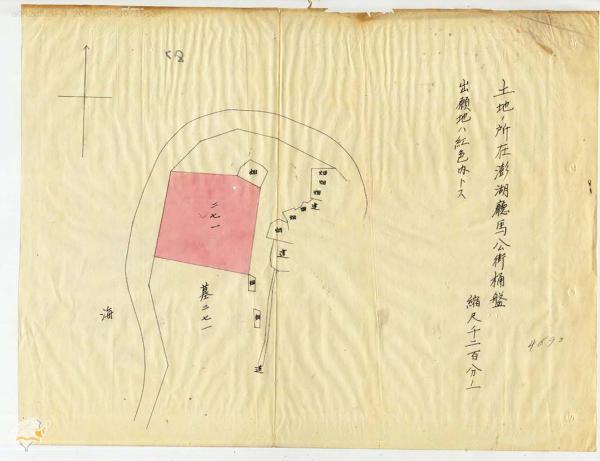 土地ノ所在澎湖廳馬公街桶盤
出願地ハ紅色内トス
縮尺千二百分ノ一
畑
畑
畑
畑
畑
畑
畑
道
畑
道
二七一
墓二七一
畑
畑
海
道